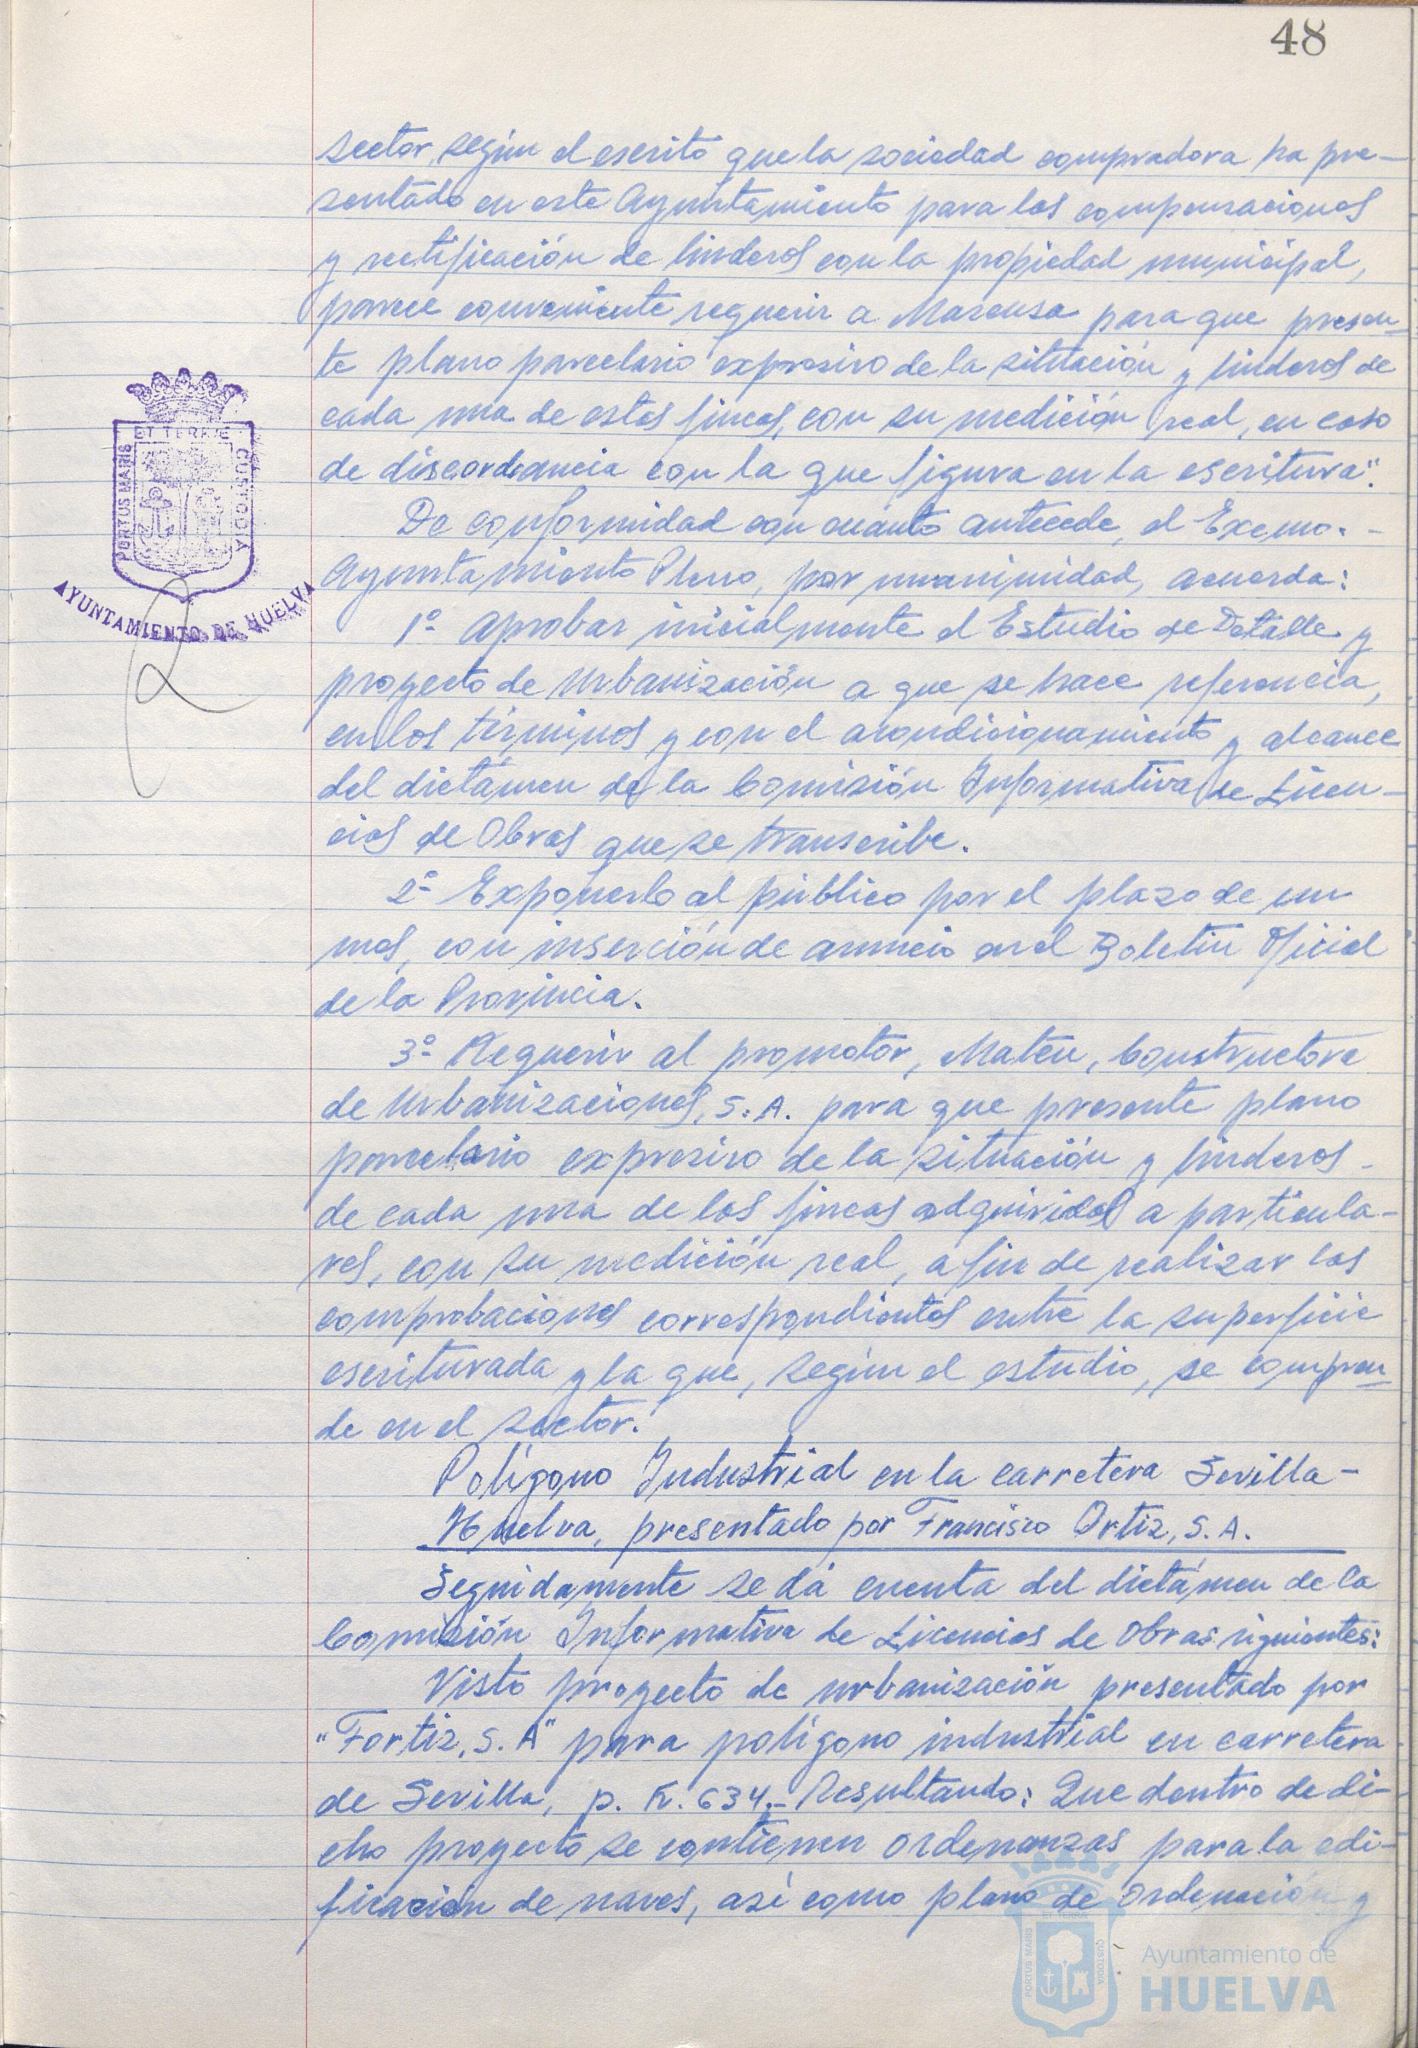 48
sector, según el escrito que la sociedad compradora ha pre-
sentado en este Ayuntamiento para las compensaciones
y rectificación de linderos con la propiedad municipal,
parece conveniente requerir a Marcusa para que presen-
te plano parcelario expresivo de la situación y linderos de
cada una de estas fincas, con su medición real, en caso
de discordancia con la que figura en la escritura".
De conformidad con cuanto antecede, el Excmo.-
Ayuntamiento Pleno, por unanimidad, acuerda:
1º- Aprobar inicialmente el Estudio de Detalle y
proyecto de Urbanización a que se hace referencia,
en los términos y con el acondicionamiento y alcance
del dictámen de la Comisión Informativa de Licen-
cias de Obras que se transcribe.
2º- Exponerlo al público por el plazo de un
mes, con inserción de anuncio en el Boletín Oficial
de la Provincia.
3º- Requerir al promotor, Mateu, Constructora
de Urbanizaciones, S.A. para que presente plano
parcelario expresivo de la situación y linderos-
de cada una de las fincas adquiridas a particula-
res, con su medición real, a fin de realizar las
comprobaciones correspondientes entre la superficie
escriturada y la que, según el estudio, se compren-
de en el sector.
Polígono Industrial en la carretera Sevilla-
Huelva, presentado por Francisco Ortiz, S.A.
Seguidamente se dá cuenta del dictámen de la
Comisión Informativa de Licencias de Obras siguientes:
Visto proyecto de urbanización presentado por
"Fortiz, S.A" para polígono industrial en carretera
de Sevilla, p. K. 634.- Resultando: Que dentro de di-
cho proyecto se contienen ordenanzas para la edi-
ficación de naves, así como plano de ordenación y
PORTUS MARIS
ET TERRÆ
CUSTODIA
AYUNTAMIENTO DE HUELVA
PORTUS MARIS
ET TERRÆ
CUSTODIA
Ayuntamiento de
HUELVA